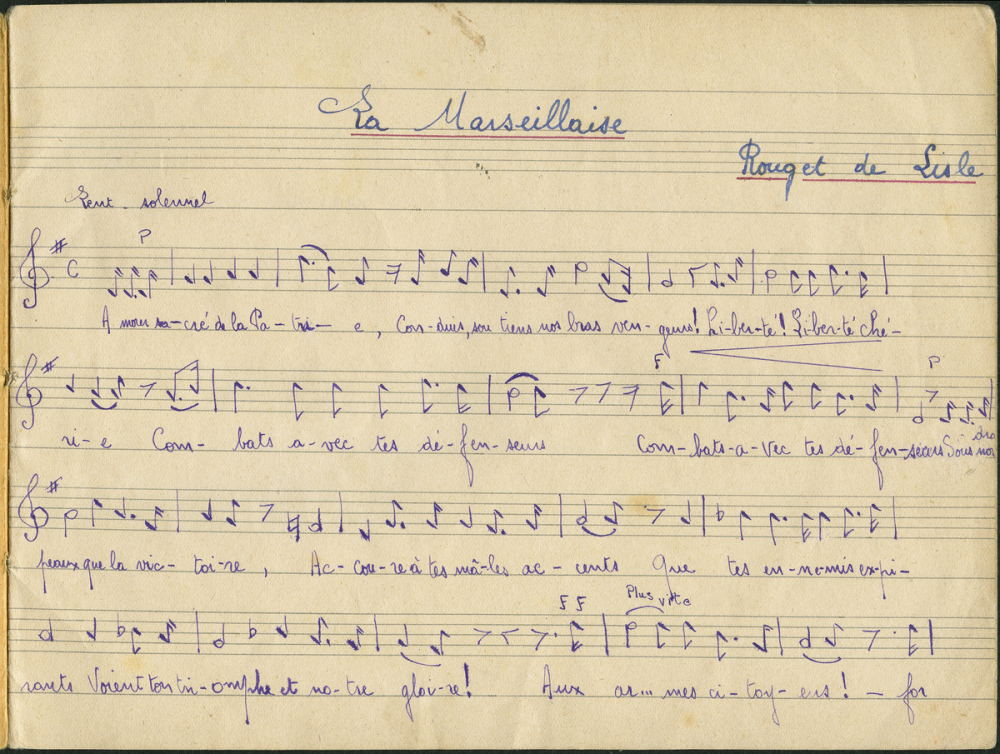 La Marseillaise
Rouget de Lisle
Lent - solennel
P
C
A mour sa-cré de la Pa-tri- e, Con-duis, sou tiens nos bras ven-geurs! Li-ber-té! Liber-té ché-
F P
ri-e Com- bats a-vec tes dé-fen-seurs Com-bats-a-vec tes dé-fen-seurs Sous nos dra
peaux que la vic- toi-re, Ac-cou-re à tes mâ-les ac- cents Que tes en-ne-mis ex-pi-
F F Plus vite
rants Voient ton tri-omphe et no-tre gloi-re! Aux ar... mes ci-toy-ens! - for